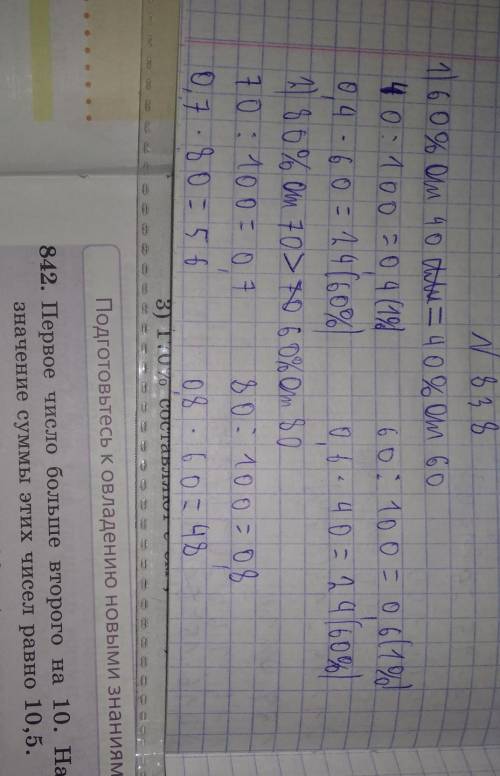 N 838
1) 60% от 40 = 40% от 60
40 : 100 = 0,4 (1%) 60 : 100 = 0,6 (1%)
0,4 · 60 = 24 (60%) 0,6 · 40 = 24 (60%)
2) 80% от 70 > 60% от 80
70 : 100 = 0,7 80 : 100 = 0,8
0,7 · 80 = 56 0,8 · 60 = 48
3) 170% составляют
Подготовьтесь к овладению новыми знаниям
842. Первое число больше второго на 10. На
значение суммы этих чисел равно 10,5.